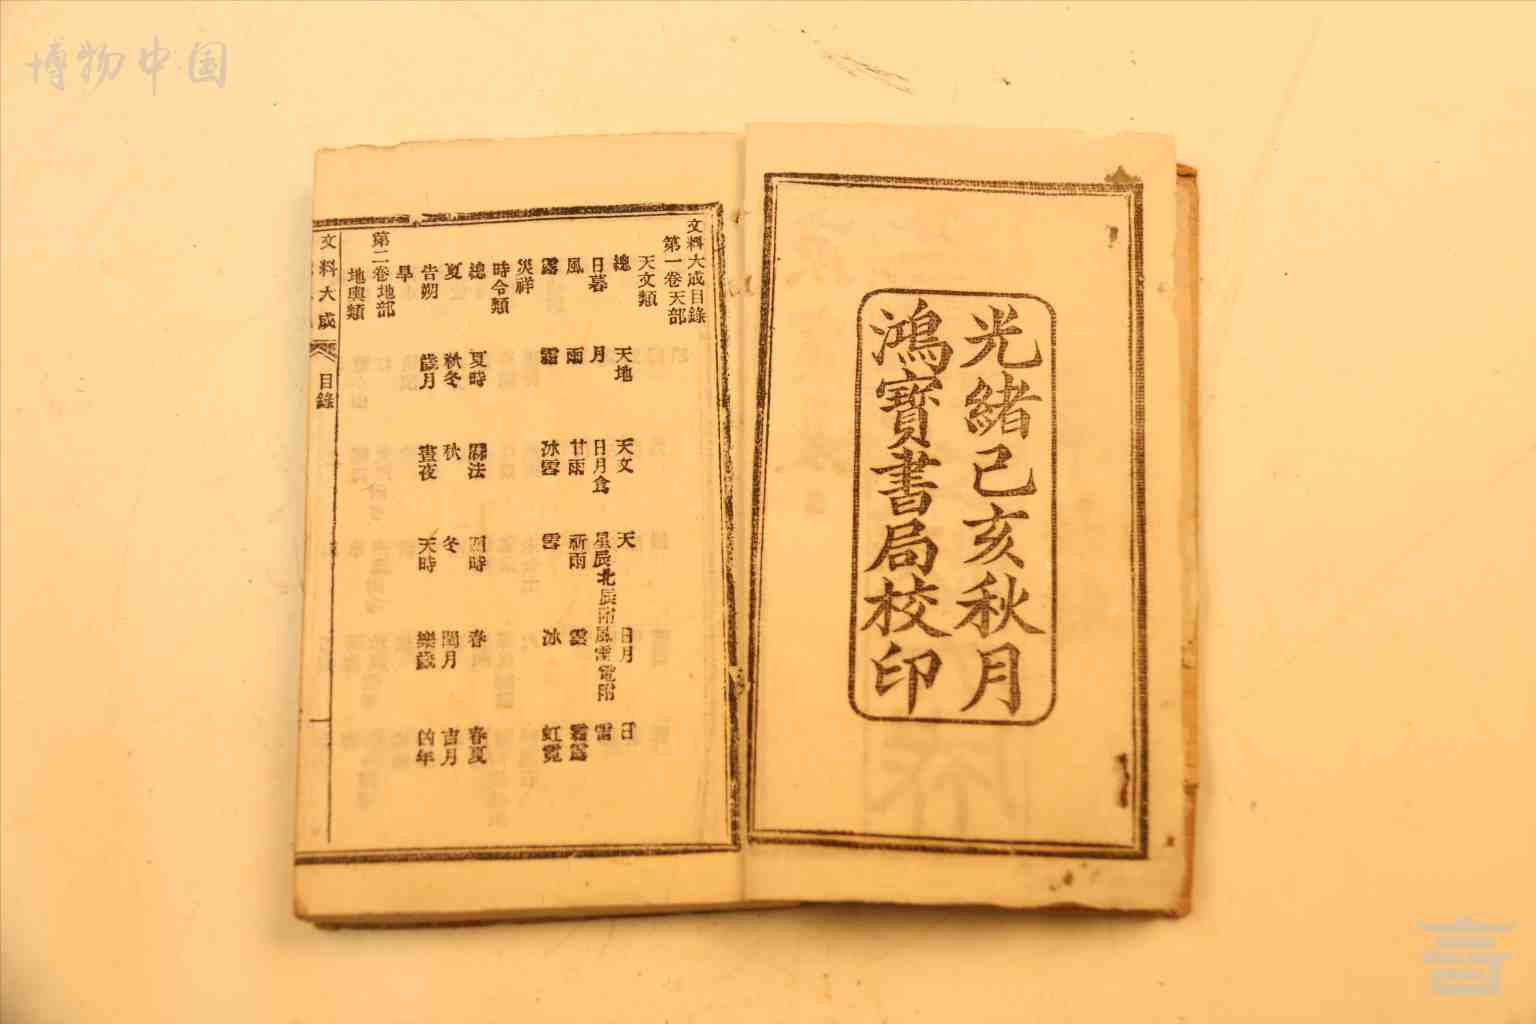 博物中国
光緒己亥秋月
鴻寶書局校印
文料大成目錄
第一卷天部
天文類
總 天地 天文 天 日月 日
日暮 月 日月食 星辰北辰附 風雷電附 雷
風 雨 甘雨 祈雨 雲 霜露
露 霜 冰雪 雪 冰 虹霓
災祥
時令類
總 夏時 厤法 四時 春 春夏
夏 秋冬 秋 冬 閏月 吉月
告朔 歲月 晝夜 天時 樂歲 凶年
旱
第二卷地部
地輿類
文料大成 目錄 一